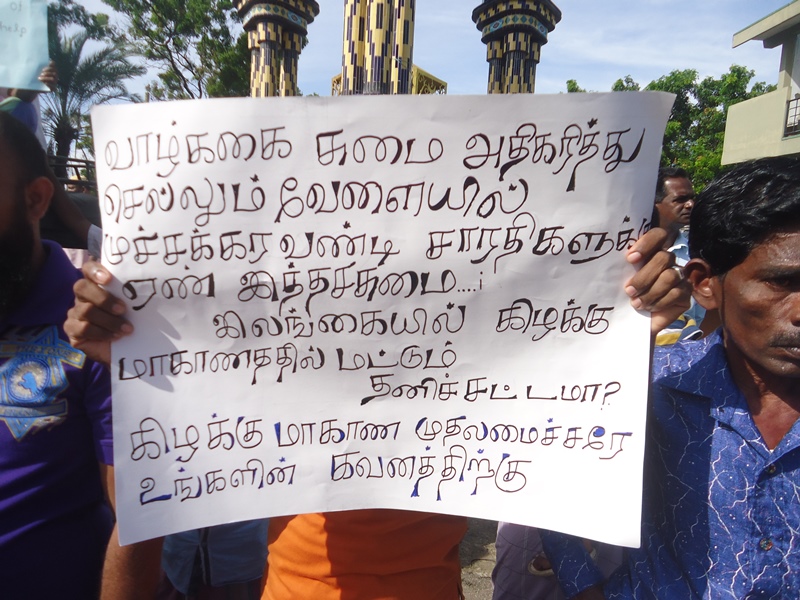 வாழ்ககை சுமை அதிகரித்து
செல்லும் வேளையில்
முச்சக்கர வண்டி சாரதிகளுக்கு
ஏண் இத்தச்சுமை....i
இலங்கையில் கிழக்கு
மாகாணததில் மட்டும்
தனிச் சட்டமா?
கிழக்கு மாகாண முதலமைச்சரே
உங்களின் கவனத்திற்கு